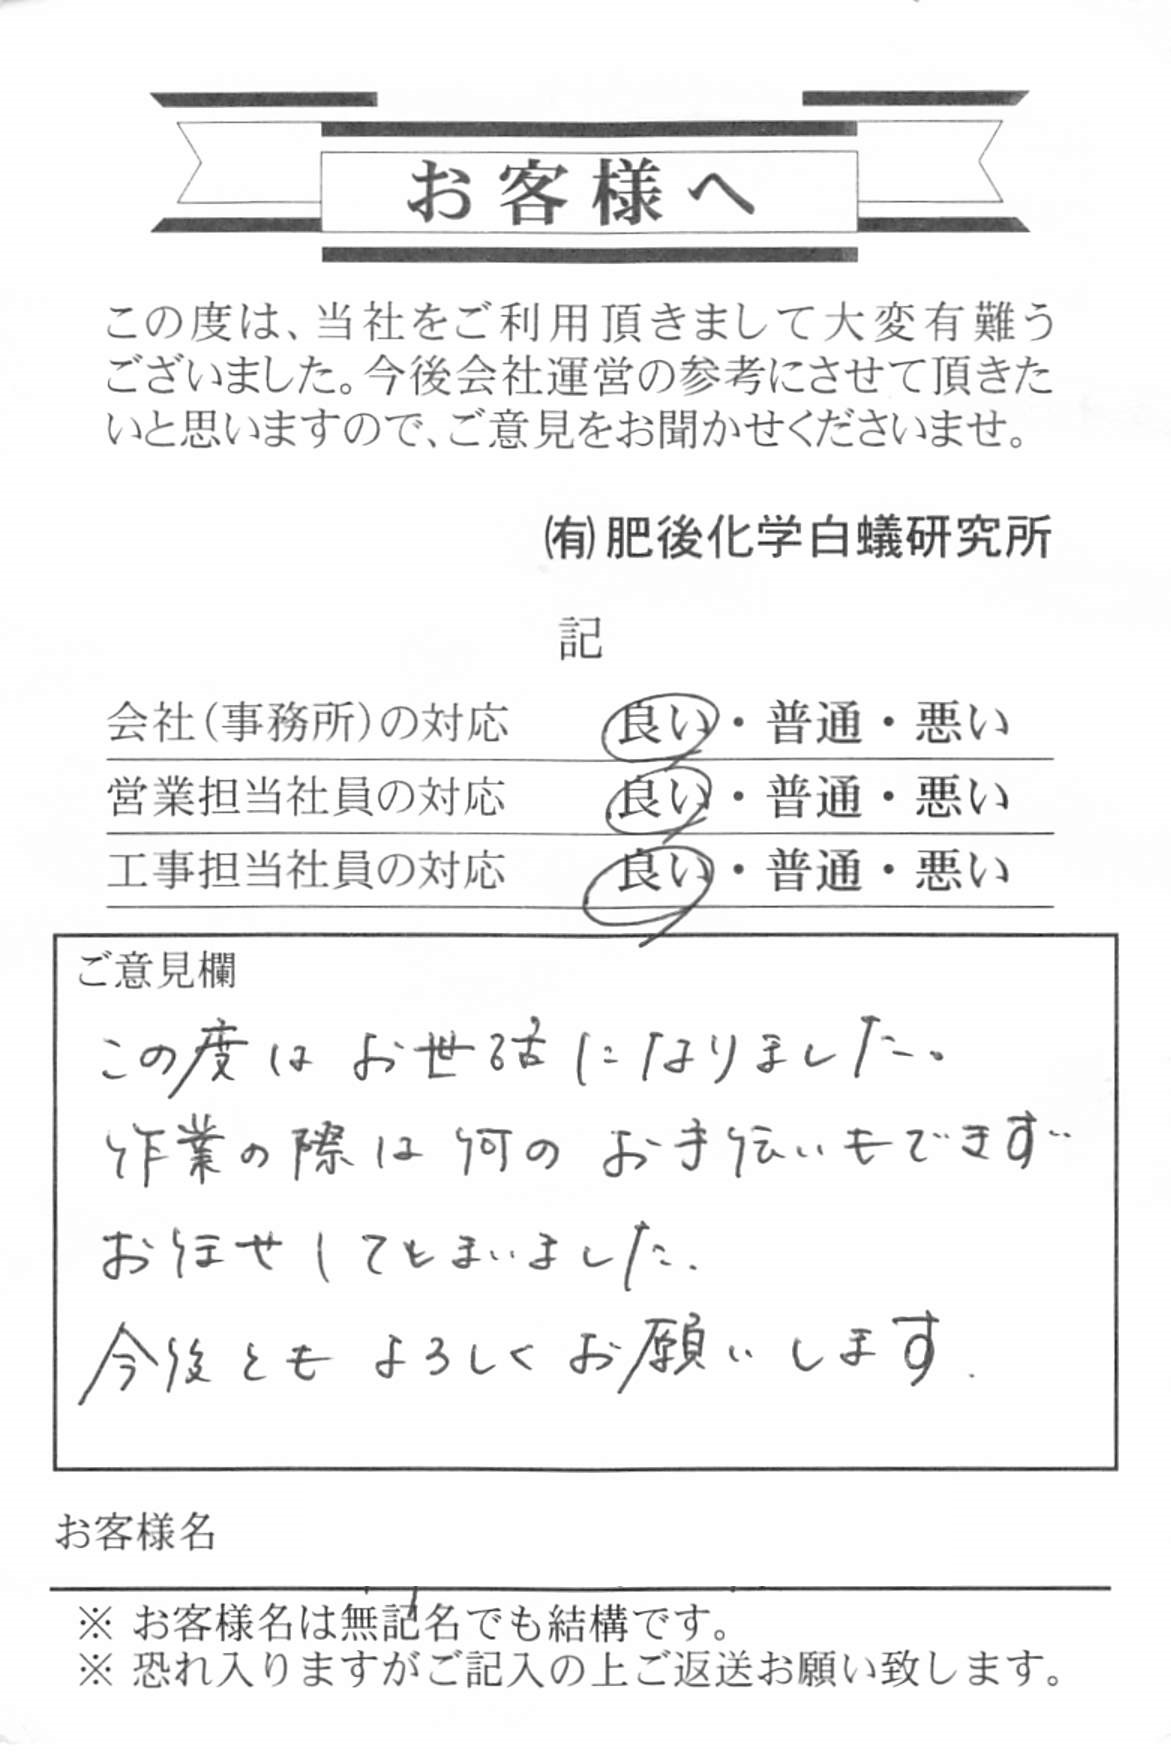 お客様へ
この度は、当社をご利用頂きまして大変有難う
ございました。今後会社運営の参考にさせて頂きた
いと思いますので、ご意見をお聞かせくださいませ。
㈲肥後化学白蟻研究所
記
会社(事務所)の対応 良い・普通・悪い
営業担当社員の対応 良い・普通・悪い
工事担当社員の対応 良い・普通・悪い
ご意見欄
この度はお世話になりました。
作業の際は何のお手伝いもできず
お任せしてしまいました.
今後ともよろしくお願いします.
お客様名
※ お客様名は無記名でも結構です。
※ 恐れ入りますがご記入の上ご返送お願い致します。